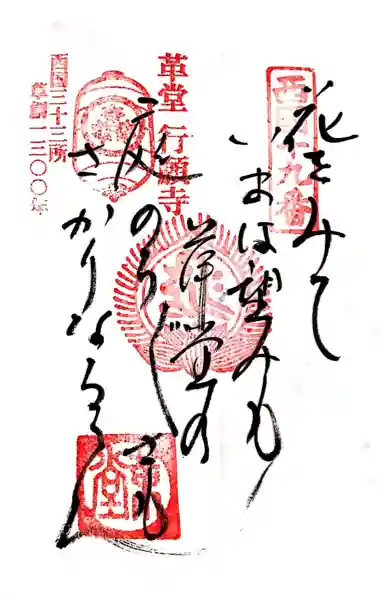 西国十九番
花をみて
いまは望みも
革堂の
庭のちぐさも
さかりなるらん
革堂 行願寺
西国三十三所
草創一三〇〇年